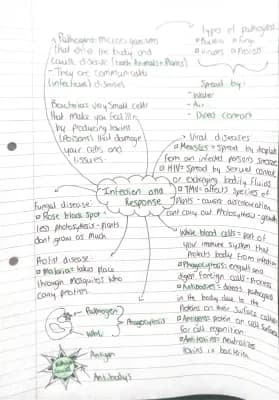 - Pathogens: micro organisms
that enter the body and
cause disease (both Animals + Plants)
- They are communicable
(infectious) diseases
types of pathogens
Bacteria
Fungi
Viruses
Protist
Spread by:-
- Water
- Air
- Direct contact
Bacteria: very small cells
that make you feel ill
by producing toxins
(Poisons) that damage
your cells and
tissues.
- Viral diseases
Measles = spread by droplets
from an infected persons sneeze
HIV = Spread by sexual contact
or exchanging bodily fluids
TMV = affects species of
Plants - cause discolouration
cant carry out Photosynthesis - growth
Infection and
Response
Fungal disease:
Rose black spot -
less photosynthesis - plants
dont grow as much
Protist disease:
Malaria = takes place
through Mosquitos who
carry protists.
White blood cells = part of
your immune system that
Protects body from infection
Phagocytosis: engulf and
digest foreign cells -
Antibodies = detects pathogens
in the body due to the
Proteins on their surface called
Antigens: protein on cell surface
for cell recognition
Antitoxins: neutralise
toxins in bacteria
Pathogen
WBC
Phagocytosis
Antigen
Antibodys